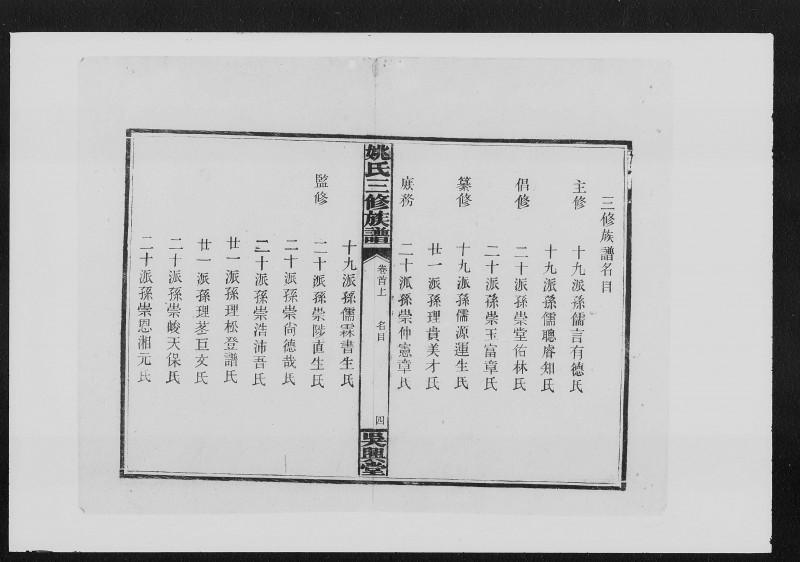 三修族譜名目
主修 十九派孫儒言有德氏
十九派孫儒聰睿知氏
倡修 二十派孫崇堂佑林氏
二十派孫崇玉富章氏
纂修 十九派孫儒源運生氏
廿一派孫理貴美才氏
庶務 二十派孫崇仲憲章氏
姚氏三修族譜
卷首上 名目 四
吳興堂
十九派孫儒霖書生氏
監修 二十派孫崇陟直生氏
二十派孫崇尙德哉氏
二十派孫崇浩沛吾氏
廿一派孫理松登譜氏
廿一派孫理荃巨文氏
二十派孫崇峻天保氏
二十派孫崇恩湘元氏